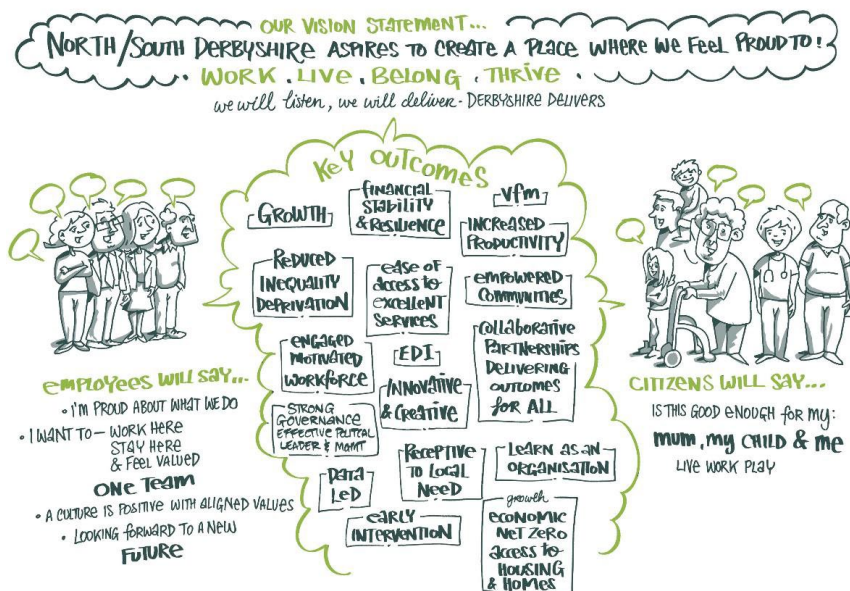 OUR VISION STATEMENT...
NORTH/SOUTH DERBYSHIRE ASPIRES TO CREATE A PLACE WHERE WE FEEL PROUD TO!
WORK . LIVE . BELONG . THRIVE .
we will listen, we will deliver - DERBYSHIRE DELIVERS
KEY OUTCOMES
GROWTH
FINANCIAL
STABILITY
& RESILIENCE
vfm
INCREASED
PRODUCTIVITY
REDUCED
INEQUALITY
DEPRIVATION
ease of
access to
excellent
services
EMPOWERED
COMMUNITIES
ENGAGED
MOTIVATED
WORKFORCE
EDI
COLLABORATIVE
PARTNERSHIPS
DELIVERING
OUTCOMES
for ALL
INNOVATIVE
& CREATIVE
STRONG
GOVERNANCE
EFFECTIVE POLITCAL
LEADER & MGMT
DATA
LED
RECEPTIVE
TO LOCAL
NEED
LEARN AS AN
ORGANISATION
EARLY
INTERVENTION
growth
ECONOMIC
NET ZERO
access to
HOUSING
& HOMES
EMPLOYEES WILL SAY...
• I'M PROUD ABOUT WHAT WE DO
• I WANT TO – WORK HERE
STAY HERE
& FEEL VALUED
ONE TEAM
• A CULTURE IS POSITIVE WITH ALIGNED VALUES
• LOOKING FORWARD TO A NEW
FUTURE
CITIZENS WILL SAY...
IS THIS GOOD ENOUGH FOR MY:
MUM, MY CHILD & ME
LIVE WORK PLAY